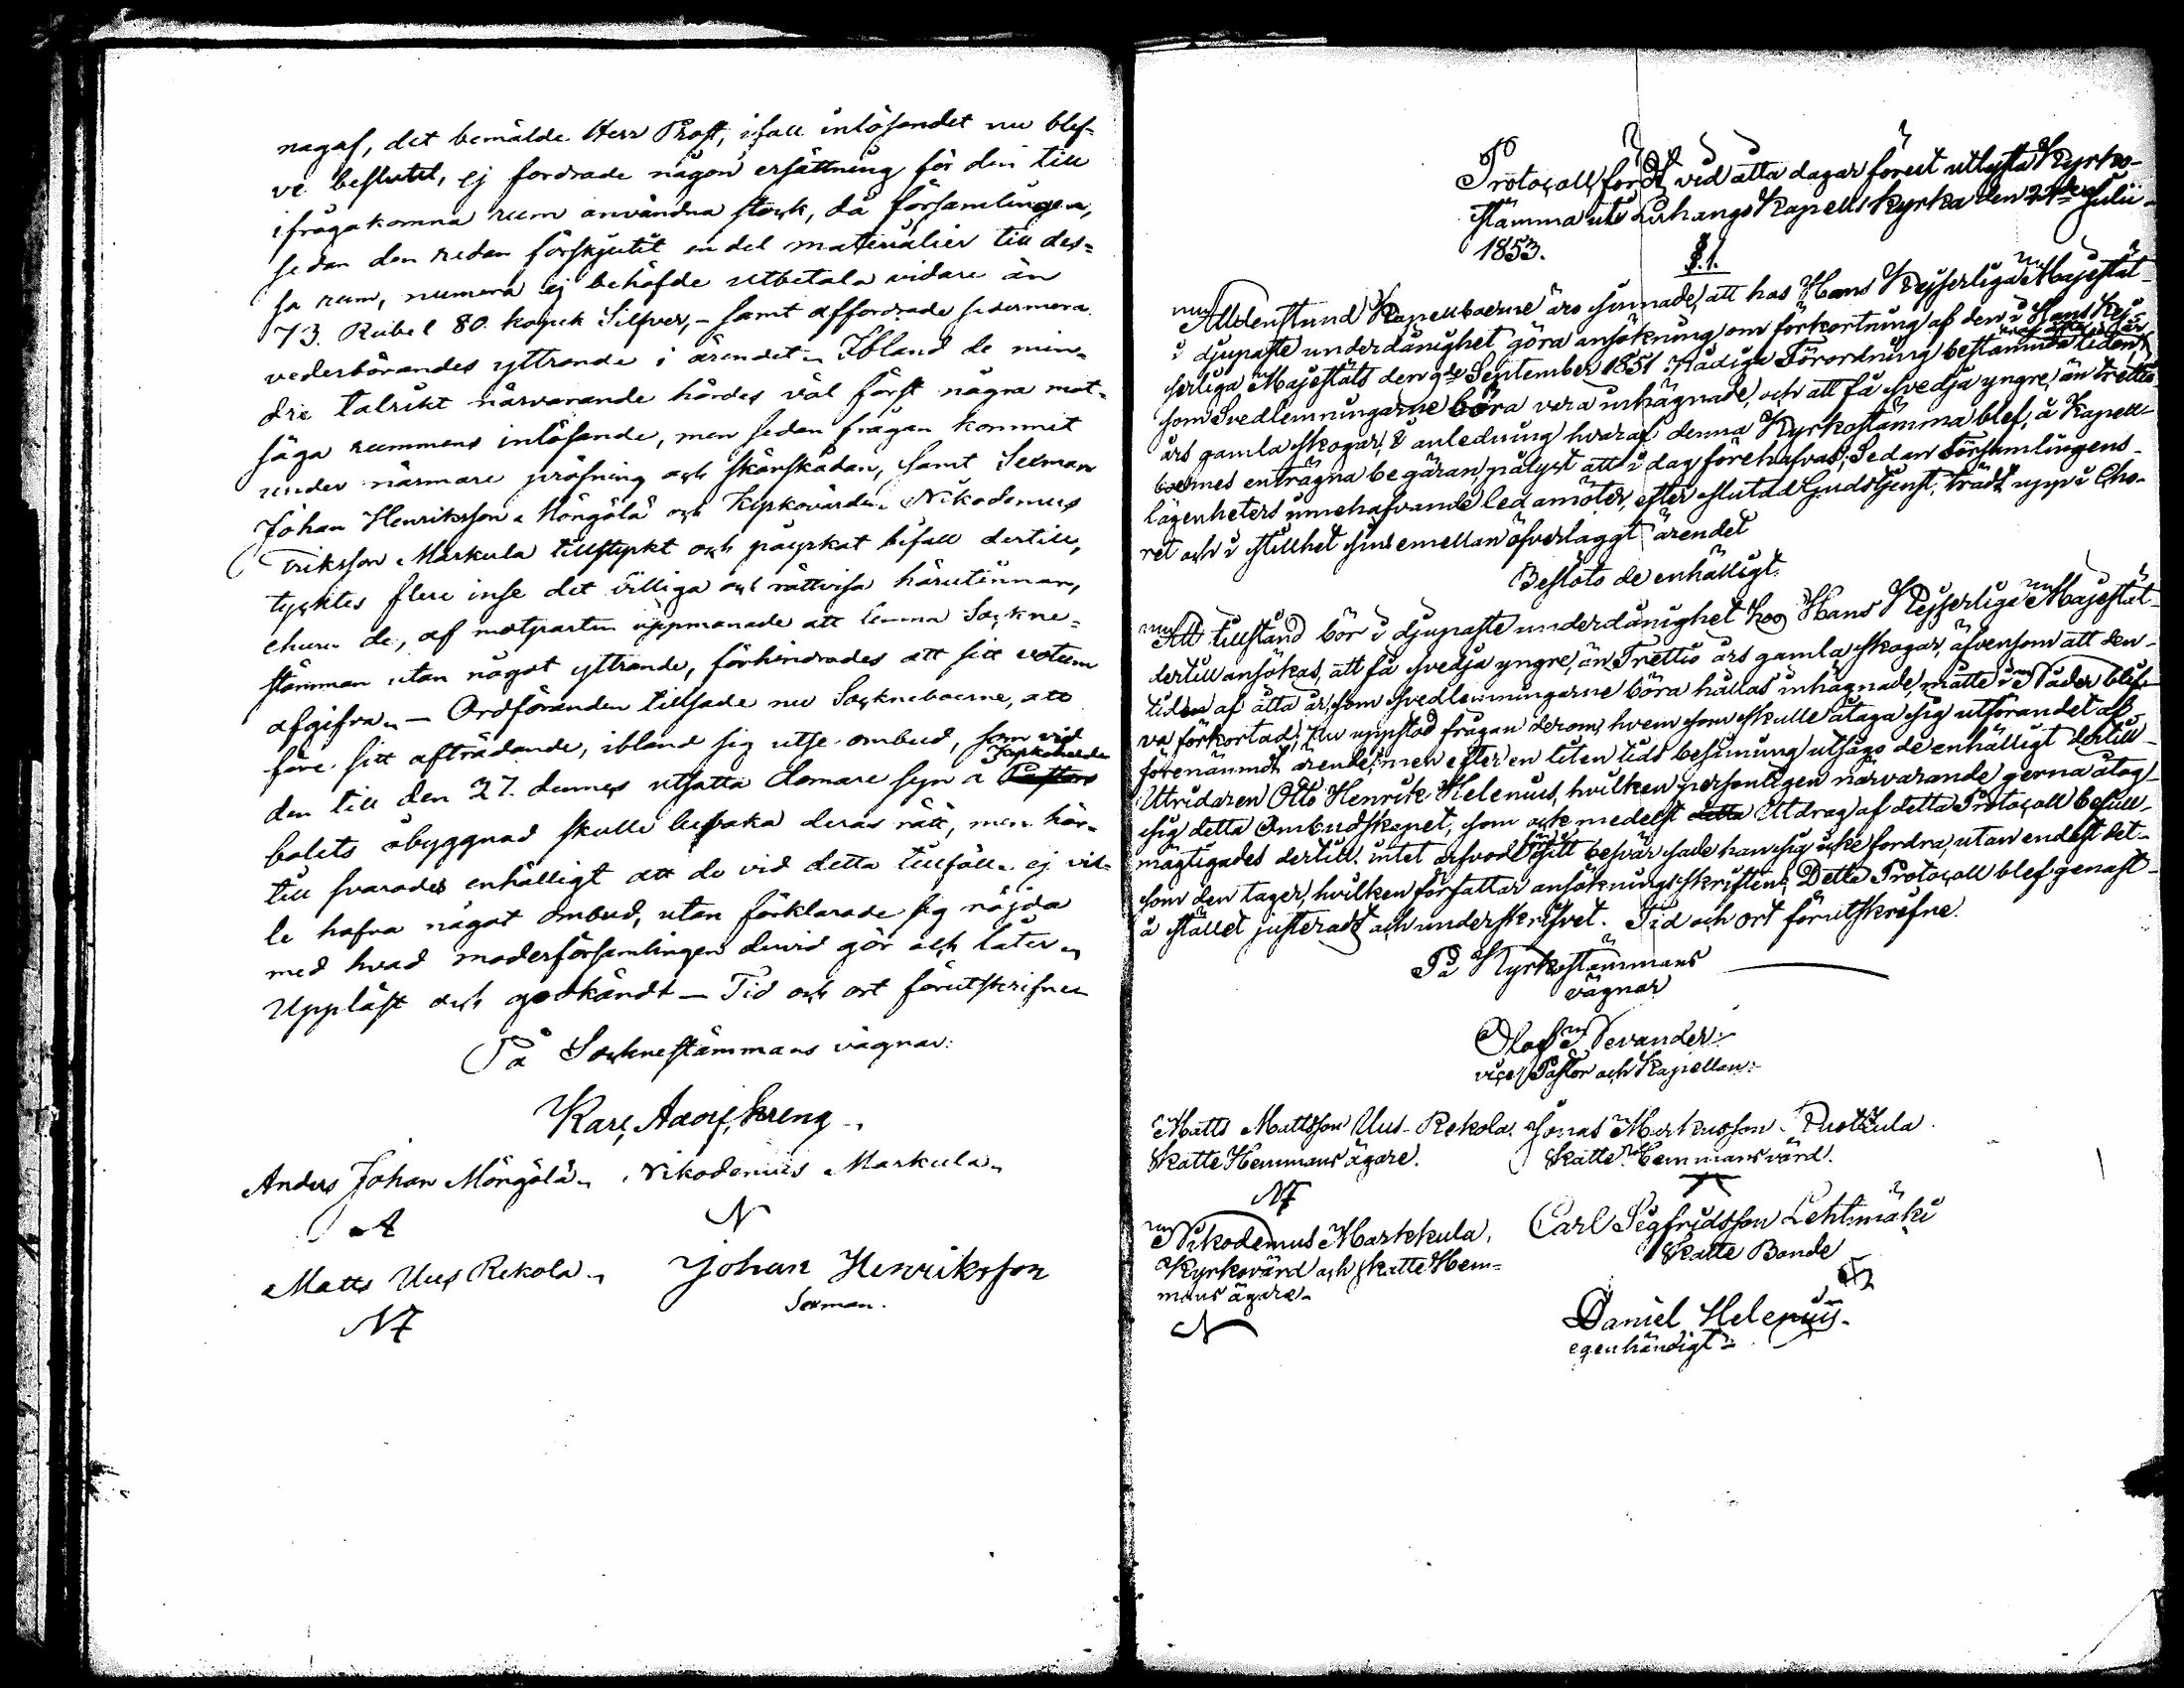 nagaf, det bemälde Herr Prost, ifall inlösandet nu blef-
ve beslutet, ej fordrade någon ersättning för den till
ifrågakomna rum använda stock, då församlingen,
sedan den redan förskjutit en del materialier till des-
sa rum, numera ej behöfde utbetala vidare än
73. Rubel 80. kopek Silfver, – samt affordrade sedermera
vederbörandes yttrande i ärendet. Ibland de min-
dre talrikt närvarande hördes väl först några mot-
säga rummens inlösande, men sedan frågan kommit
under närmare pröfning och skärskådan, samt Sexman
Johan Henriksson Möngölä och Kyrkovärden Nikodemus
Eriksson Markula tillstyrkt och påyrkat bifall dertill,
tycktes flere inse det billiga och rättvisa härutinnan,
ehuru de, af motparten uppmanade att lemna Sockne-
stämman utan något yttrande, förhindrades att sitt votum
afgifva. – Ordföranden tillsade nu Socknéboerne, att
före sitt afträdande, ibland sig utse ombud, som vid
den till den 27. dennes utsatta domare syn å Pastors Kapellans
bolets åbyggnad skulle bevaka deras rätt, men här-
till svarades enhälligt att de vid detta tillfälle ej vil-
le hafva något ombud, utan förklarade sig nöjda
med hvad moderförsamlingen dervid gör och låter.
Uppläst och godkändt – Tid och ort förutskrifne
På Socknestämmans vägnar:
Karl Adolf
Anders Johan Möngölä. Nikodemus Markula.
A N
Matts Uus Rekola. Johan Henriksson
Sexman.
Protocoll, fördt vid åtta dagar förut utlyst Kyrko-
stämma uti Kapells kyrka den 24de Julii
1853.
§.1.
Alldenstund Kapellboerne äro sinnade, att hos Hans Kejserliga Majestät
i djupaste underdånighet göra ansökning om förkortning af den i Hans Kej-
serliga Majestäts den 9de September 1851 Nådige Förordning bestämmda tiden,
som Svedlemningarne böra vera inhägnade, och att få svedja yngre, än trettio
års gamla skogar, i anledning hvaraf denna Kyrkostämma blef, å Kapell-
boernes enträgna begäran, pålyst att i dag förehafvas; Sedan Församlingens
lägenheters innehafvande ledamöter, efter slutad Gudstjenst, trädt upp i Cho-
ret och i stillhet sins emellan öfverlaggt ärendet
Beslöts de enhälligt.
Att tillstånd bör i djupaste underdånighet hos Hans Kejserliga Majestät
dertill ansökas, att få svedja yngre, än Trettio års gamla skogar, äfvensom att den
tiden af åtta år, som svedlemningarne böra hållas inhägnade, måtte i Nåder blif-
va förkortad; Nu uppstod frågan derom, hvem som skulle åtaga sig utförandet af
förenämndt ärende, men efter en liten tids besinning utsågs de enhälligt dertill
Utridaren Otto Henrik Helenius, hvilken personligen närvarande gerna åtog
sig detta Ombudskapet, som ock medelst detta Utdrag af detta Protocoll befull-
mägtigades dertill. intet arfvode för sitt besvär sade han sig icke fordra, utan endast det
som den tager, hvilken författar ansöknings skriften. Detta Protocoll blef genast
å stället justeradt och underskrifvet. Tid och ort förutskrefne.
På Kyrkostämmans
vägnar
Olof Nevander
vice Pastor och Kapellan:
Matts Mattsson Uus-Rekola. Jonas Markusson Ruokula.
Skatte Hemmans ägare. Skatte Hemmans värd.
Nikodemus Markkula. Carl Segfridsson Lehtimäki
Kyrkovärd och skatte Hem- Skatte Bonde
mans ägare.
N
Daniel Helenius
egenhändigt